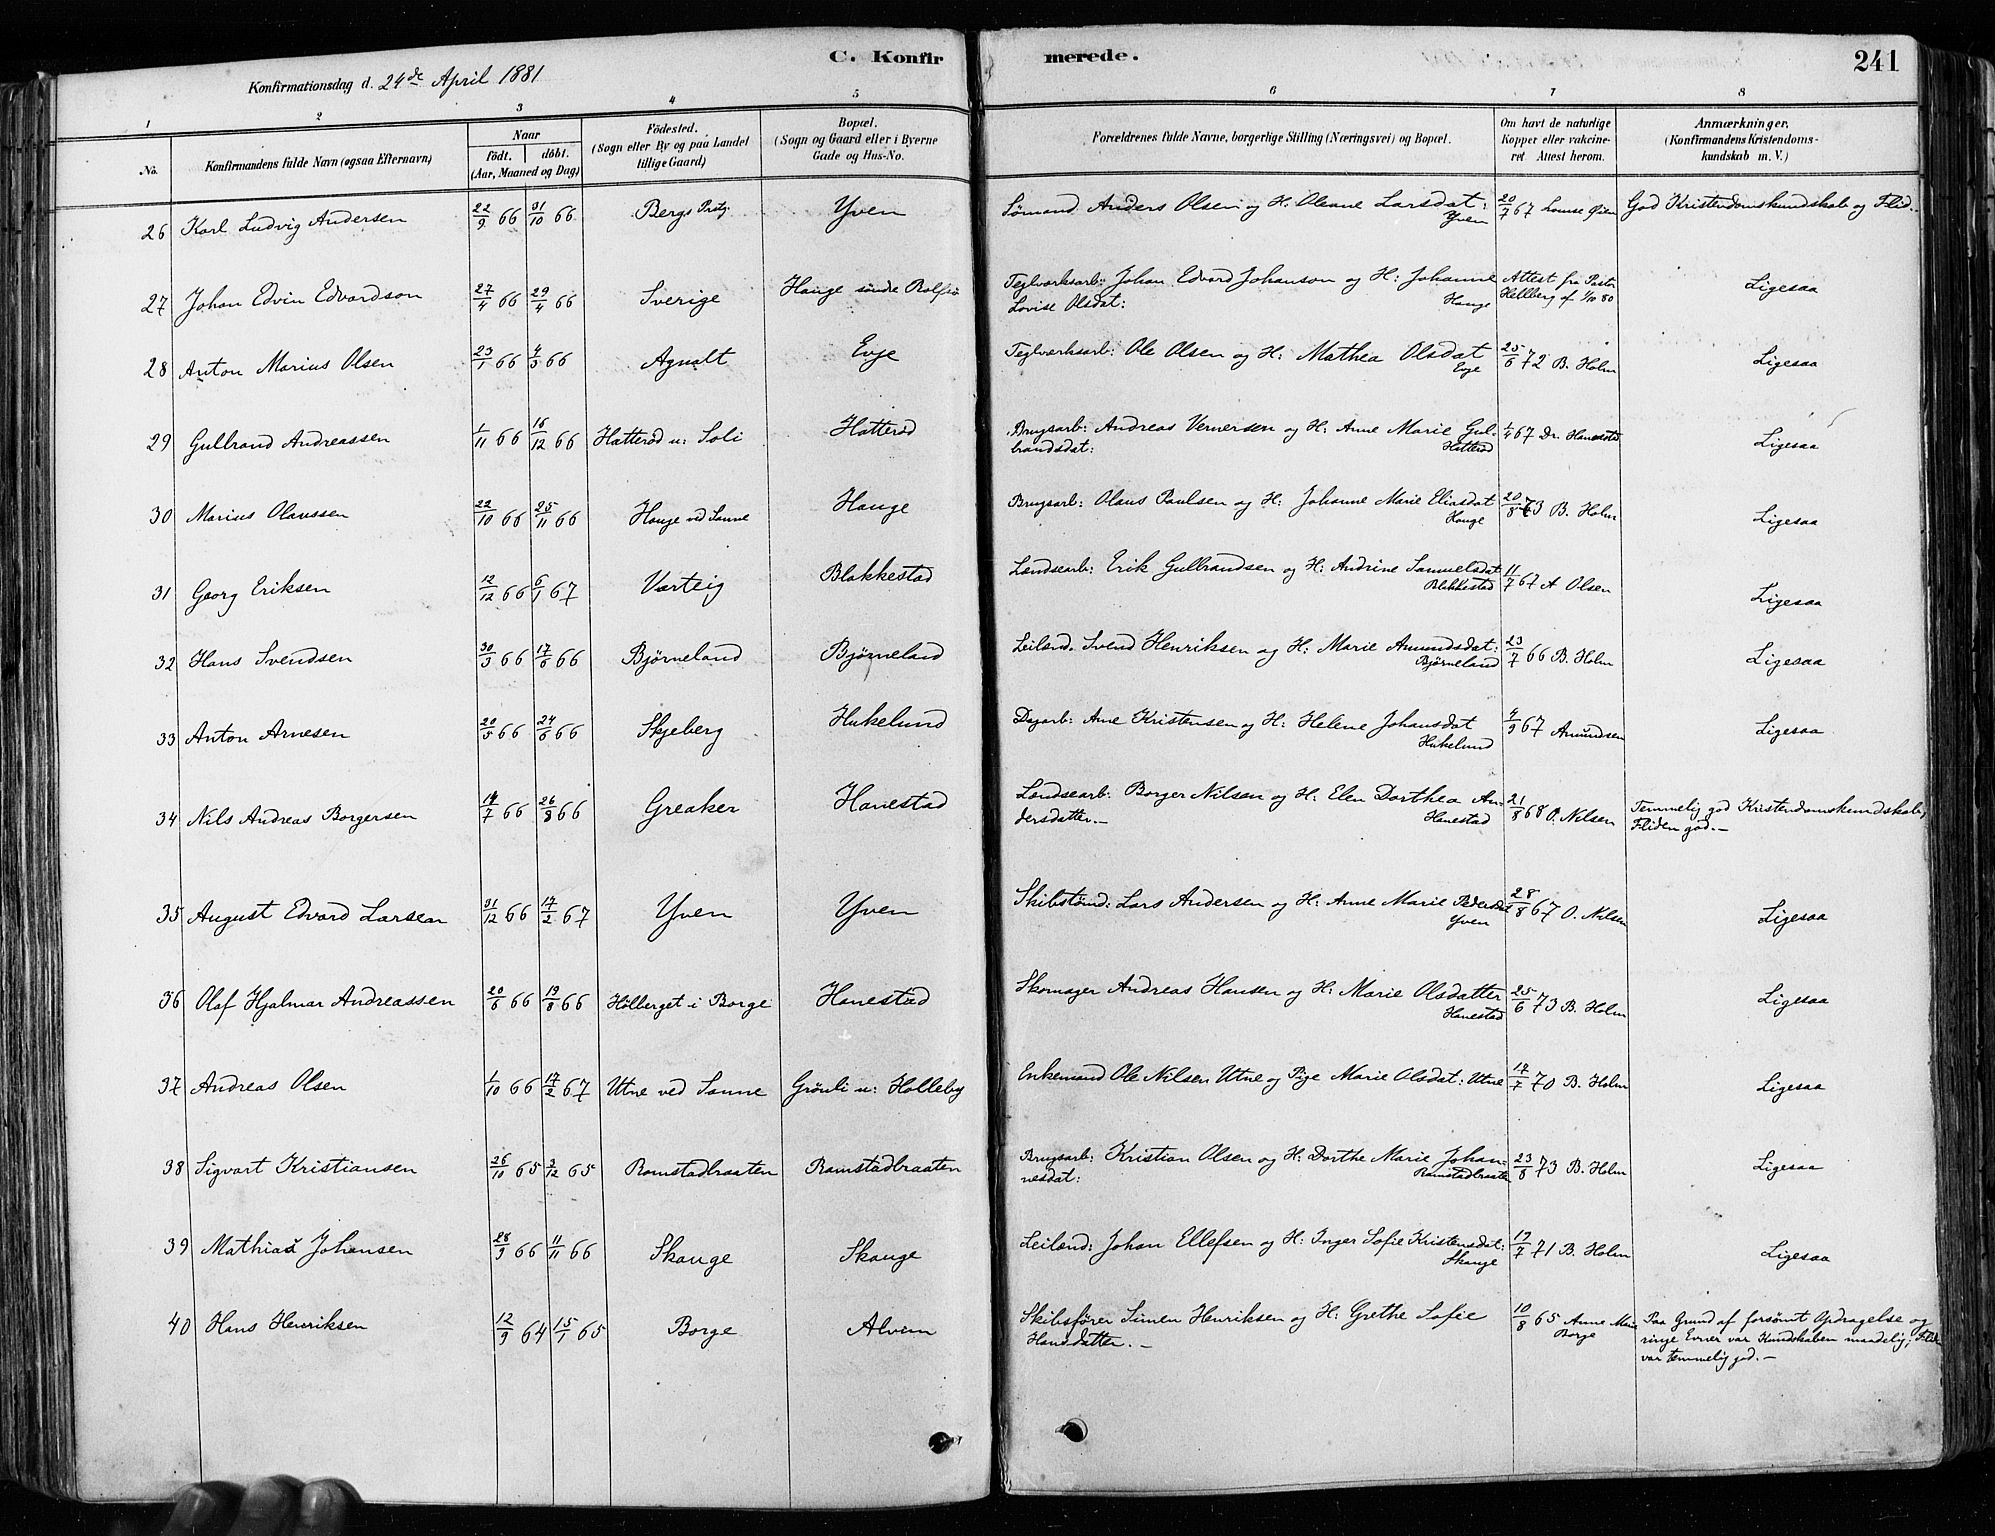 C. Konfirmerede. 241
Konfirmationsdag d. 24de April 1881
1 2 3 4 5 6 7 8
No. Konfirmandens fulde Navn (ogsaa Efternavn) Naar födt. döbt. (Aar, Maaned og Dag) Födested. (Sogn eller By og paa Landet tillige Gaard) Bopæl. (Sogn og Gaard eller i Byerne Gade og Hus-No. Forældrenes fulde Navne, borgerlige Stilling (Næringsvei) og Bopæl. Om havt de naturlige Kopper eller vakcineret. Attest herom. Anmærkninger. (Konfirmandens Kristendomskundskab m. V.)
26 Karl Ludvig Andersen 22/9 66 31/10 66 Bergs Prstg. Yven Sömand Anders Olsen og H: Oleane Larsdat: Yven 20/7 67 God Kristendomskundskab og Flid.
27 Johan Edvin Edvardson 27/4 66 29/4 66 Sverige Hauge söndre Rolfsö Teglverksarb: Johan Edvard Johanson og H: Johanne
Lovise Olsdat: Hauge Attest fra Pastor Hellberg af 1/10 80 Ligesaa
28 Anton Marius Olsen 23/1 66 4/3 66 Agnalt Evje Teglverksarb: Ole Olsen og H: Mathea Olsdat Evje 25/6 72 B. Holm Ligesaa
29 Gulbrand Andreassen 1/11 66 16/12 66 Hatteröd u: Soli Hatteröd Brugsarb: Andreas Vernersen og H: Anne Marie Gul-
brandsdat: Hatteröd 1/4 67 Dr. Hanestad Ligesaa
30 Marius Olaussen 22/10 66 25/11 66 Hauge ved Sanne Hauge Brugsarb: Olaus Paulsen og H: Johanne Marie Eliasdat Hauge 20/8 73 B. Holm Ligesaa
31 Georg Eriksen 12/12 66 6/1 67 Varteig Blakkestad Lændsearb: Erik Gulbrandsen og H: Andrine Samuelsdat Blakkestad 11/7 67 A Olsen Ligesaa
32 Hans Svendsen 30/3 66 17/6 66 Björneland Björneland Leilænd. Svend Henriksen og H: Marie Amundsdat: Björneland 23/7 66 B. Holm Ligesaa
33 Anton Arnesen 20/5 66 24/6 66 Skjeberg Hukelund Dagarb: Arne Kristensen og H: Helene Johansdat Hukelund 4/9 67 Amundsen Ligesaa
34 Nils Andreas Borgersen 14/7 66 26/8 66 Greaker Hanestad Lændsearb: Borger Nilsen og H: Elen Dorthea An-
dersdatter.— Hanestad 21/8 68 O. Nilsen Temmelig god Kristendomskundskab,
Fliden god.—
35 August Edvard Larsen 31/12 66 17/2 67 Yven Yven Skibstömd: Lars Andersen og H: Anne Marie Pedersdat Yven 28/8 67 O. Nilsen Ligesaa
36 Olaf Hjalmar Andreassen 20/6 66 19/8 66 Hölberget i Borge Hanestad Skomager Andreas Hansen og H: Marie Olsdatter Hanestad 25/6 73 B. Holm Ligesaa
37 Andreas Olsen 1/10 66 17/2 67 Utne ved Sanne Grönli u: Holleby Enkemand Ole Nilsen Utne og Pige Marie Olsdat: Utne 14/7 70 B. Holm Ligesaa
38 Sigvart Kristiansen 26/10 65 3/12 65 Ramstadbraaten Ramstadbraaten Brugsarb: Kristian Olsen og H: Dorthe Marie Johan-
nesdat: Ramstadbraaten 23/8 73 B. Holm Ligesaa
39 Mathias Johansen 28/9 66 11/11 66 Skauge Skauge Leilænd: Johan Ellefsen og H: Inger Sofie Kristensdat: Skauge 19/7 71 B. Holm Ligesaa
40 Hans Henriksen 12/9 64 15/1 65 Borge Alvim Skibsförer Simen Henriksen og H: Grethe Sofie
Hansdatter.— 10/8 65 Anne Marie Borge Paa Grund af forsömt Opdragelse og
ringe Evner var Kundskaben maadelig; Flid
var temmelig god.—